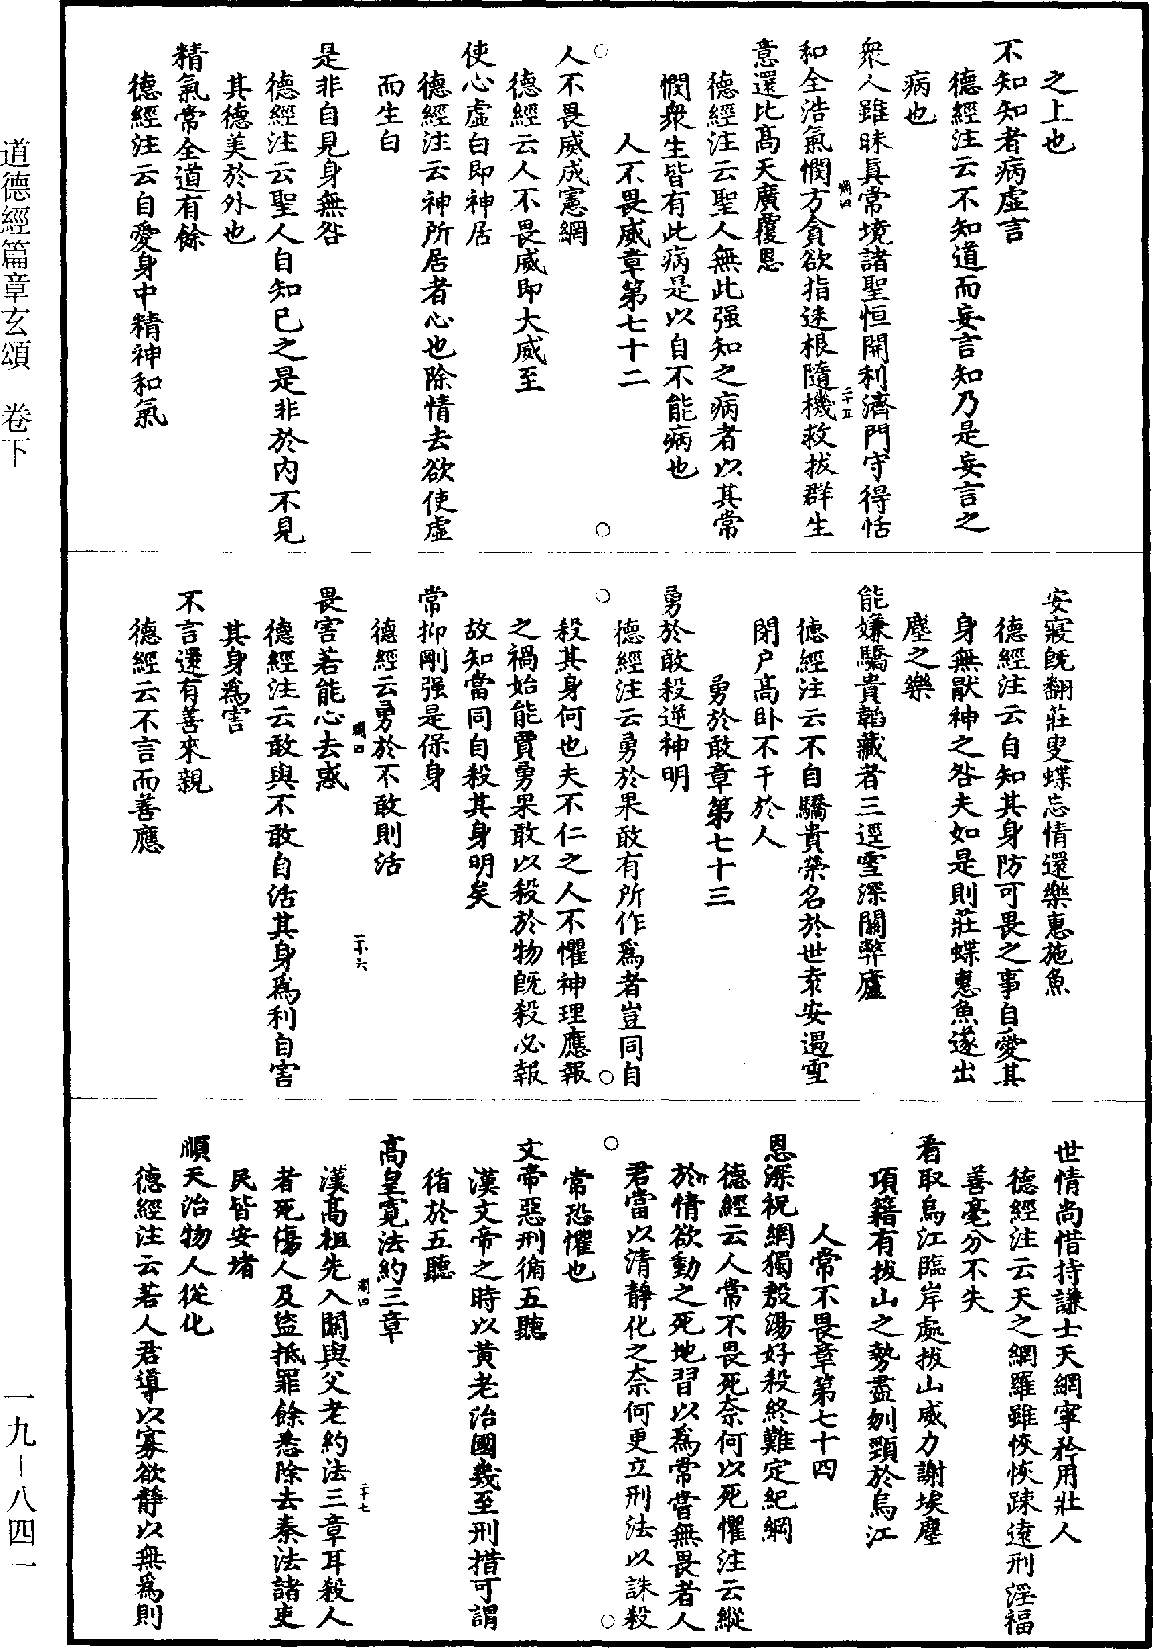 之上也
不知知者病虛言
德經注云不知道而妄言知乃是妄言之
病也
衆人雖昧真常境諸聖恒開利濟門守得恬
和全浩氣憫方貪欲指迷根隨機救拔群生
意還比高天廣覆恩
德經注云聖人無此强知之病者以其常
憫衆生皆有此病是以自不能病也
人不畏威章第七十二
人不畏威成憲網
德經云人不畏威即大威至
使心虛白即神居
德經注云神所居者心也除情去欲使虛
而生白
是非自見身無咎
德經注云聖人自知已之是非於内不見
其德美於外也
精氣常全道有餘
德經注云自愛身中精神和氣
安寢既翻莊叟蝶忘情還樂惠施魚
德經注云自知其身防可畏之事自愛其
身無厭神之咎夫如是則莊蝶惠魚遂出
塵之樂
能嫌驕貴韜藏者三逕雪深關弊廬
德經注云不自驕貴榮名於世袁安遇雪
閉户高卧不干於人
勇於敢章第七十三
勇於敢殺逆神明
德經注云勇於果敢有所作爲者豈同自
殺其身何也夫不仁之人不懼神理應報
之禍始能賈勇果敢以殺於物既殺必報
故知當同自殺其身明矣
常抑剛强是保身
德經云勇於不敢則活
畏害若能心去惑
德經注云敢與不敢自活其身爲利自害
其身爲害
不言還有善來親
德經云不言而善應
世情尚惜持謙士天網寧矜用壯人
德經注云天之網羅雖恢恢踈遠刑淫福
善毫分不失
看取烏江臨岸處拔山威力謝埃塵
項籍有拔山之勢盡刎頸於烏江
人常不畏章第七十四
恩深祝網獨殷湯好殺終難定紀綱
德經云人常不畏死奈何以死懼注云縱
於情欲動之死地習以爲常嘗無畏者人
君當以清靜化之奈何更立刑法以誅殺
常恐懼也
文帝惡刑脩五聽
漢文帝之時以黄老治國幾至刑措可謂
循於五聽
高皇寬法約三章
漢高祖先入關與父老約法三章耳殺人
者死傷人及盜抵罪餘悉除去秦法諸吏
民皆安堵
順天治物人從化
德經注云若人君導以寡欲靜以無爲則
道德經篇章玄頌 卷下
一九—八四一